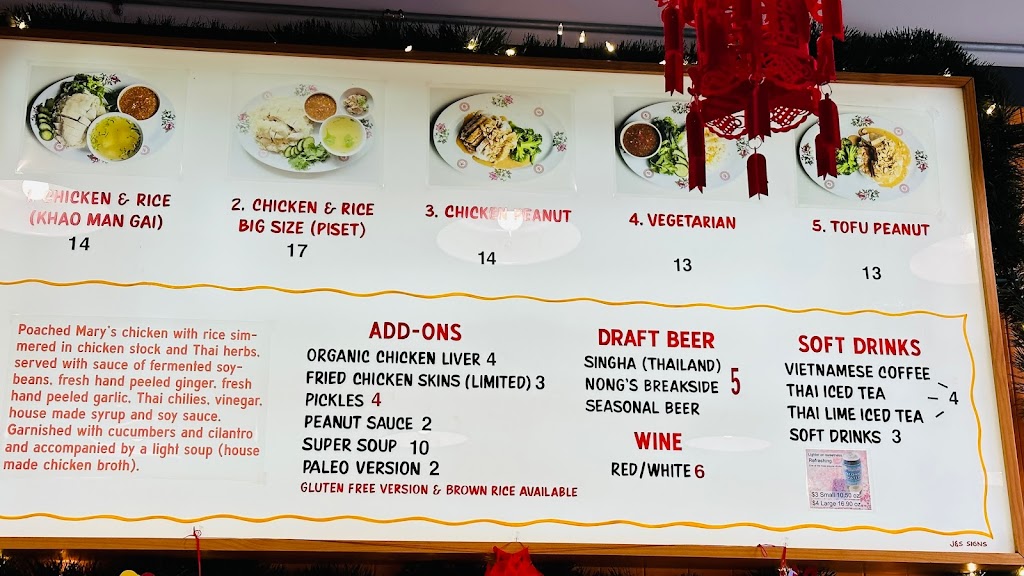 1. CHICKEN & RICE
(KHAO MAN GAI)
14
2. CHICKEN & RICE
BIG SIZE (PISET)
17
3. CHICKEN PEANUT
14
4. VEGETARIAN
13
5. TOFU PEANUT
13
Poached Mary's chicken with rice sim-
mered in chicken stock and Thai herbs.
served with sauce of fermented soy-
beans, fresh hand peeled ginger, fresh
hand peeled garlic, Thai chilies, vinegar,
house made syrup and soy sauce.
Garnished with cucumbers and cilantro
and accompanied by a light soup (house
made chicken broth).
ADD-ONS
ORGANIC CHICKEN LIVER 4
FRIED CHICKEN SKINS (LIMITED) 3
PICKLES 4
PEANUT SAUCE 2
SUPER SOUP 10
PALEO VERSION 2
GLUTEN FREE VERSION & BROWN RICE AVAILABLE
DRAFT BEER
SINGHA (THAILAND)
NONG'S BREAKSIDE 5
SEASONAL BEER
WINE
RED/WHITE 6
SOFT DRINKS
VIETNAMESE COFFEE
THAI ICED TEA 4
THAI LIME ICED TEA
SOFT DRINKS 3
Refreshing
$3 Small 10.50 oz
$4 Large 16.90 oz
J&S SIGNS